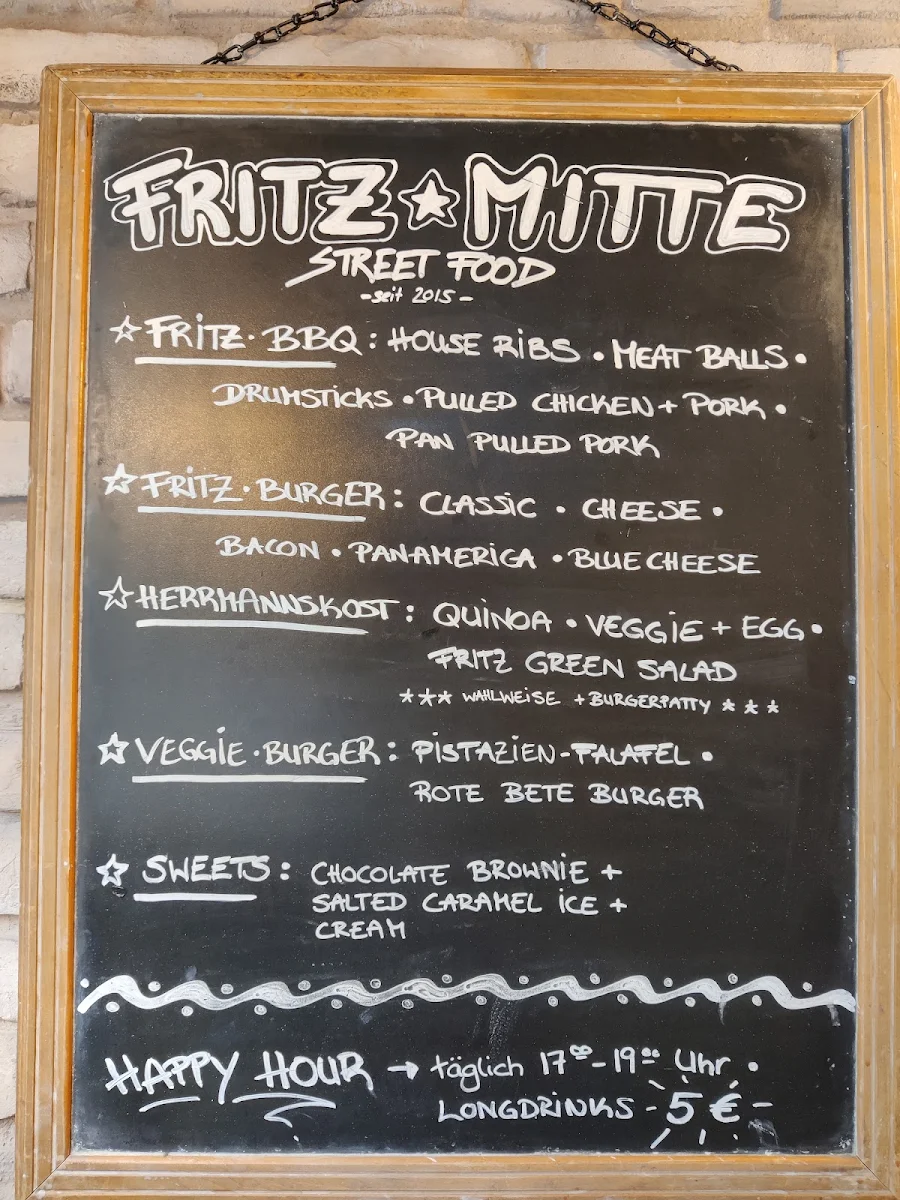 FRITZ ☆ MITTE
STREET FOOD
-seit 2015-
☆ FRITZ·BBQ: HOUSE RIBS • MEAT BALLS •
DRUMSTICKS • PULLED CHICKEN + PORK •
PAN PULLED PORK
☆ FRITZ·BURGER: CLASSIC • CHEESE •
BACON • PANAMERICA • BLUE CHEESE
☆ HERRMANNSKOST: QUINOA • VEGGIE + EGG •
FRITZ GREEN SALAD
*** WAHLWEISE + BURGERPATTY ***
☆ VEGGIE·BURGER: PISTAZIEN-FALAFEL •
ROTE BETE BURGER
☆ SWEETS: CHOCOLATE BROWNIE +
SALTED CARAMEL ICE +
CREAM
HAPPY HOUR → täglich 17⁰⁰-19⁰⁰ Uhr •
LONGDRINKS - 5 € -